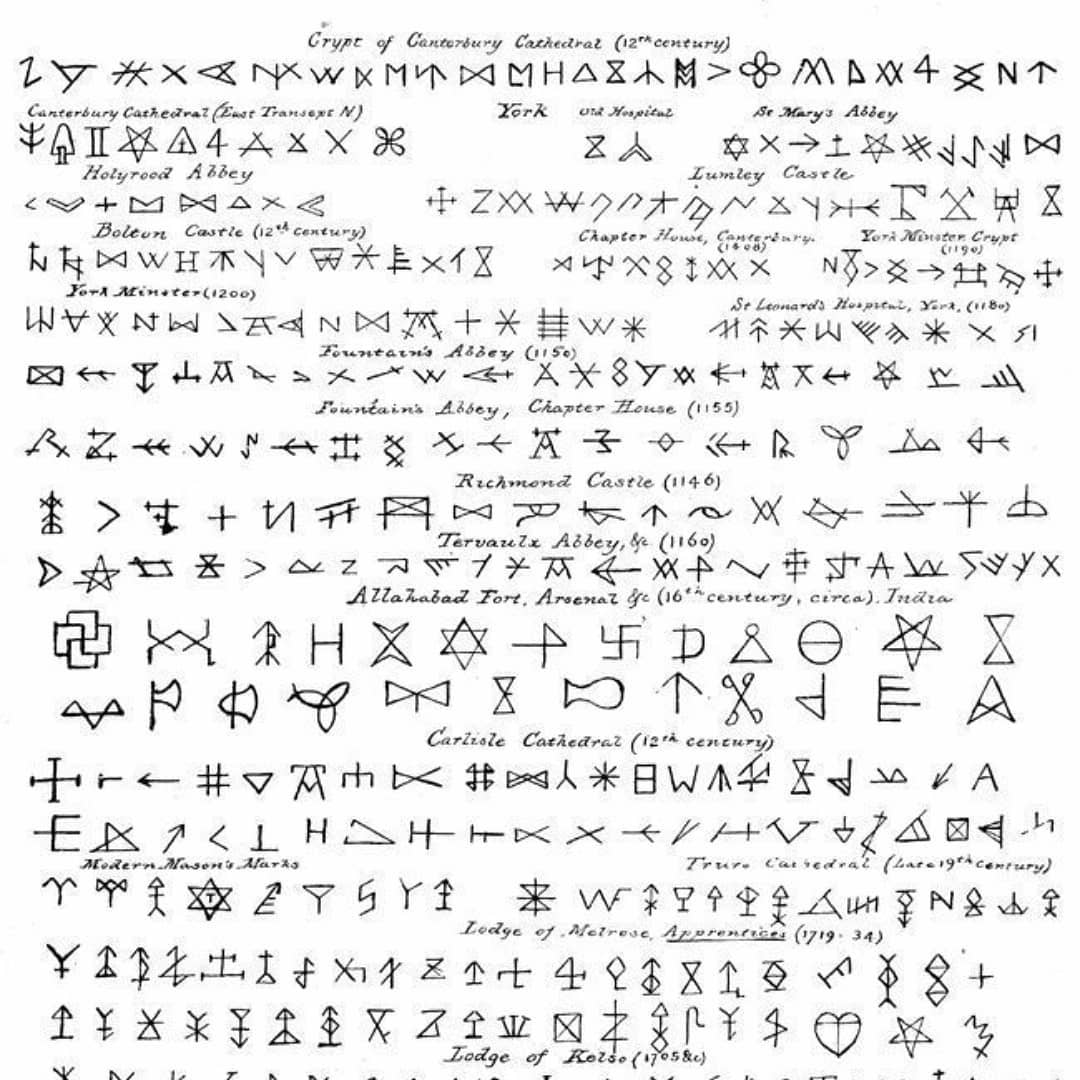 Crypt of Canterbury Cathedral (12th century)
Canterbury Cathedral (East Transept N) York Old Hospital St Mary's Abbey
Holyrood Abbey Lumley Castle
Bolton Castle (12th century) Chapter House, Canterbury. York Minster Crypt
(1190)
York Minster (1200) St Leonard's Hospital, York, (1180)
Fountain's Abbey (1150)
Fountain's Abbey, Chapter House (1155)
Richmond Castle (1146)
Tervaulx Abbey, &c (1160)
Allahabad Fort, Arsenal &c (16th century, circa). India
Carlisle Cathedral (12th century)
Modern Mason's Marks Truro Cathedral (Late 19th century)
Lodge of Melrose, Apprentices (1719-34)
Lodge of Kelso (1705 &c)